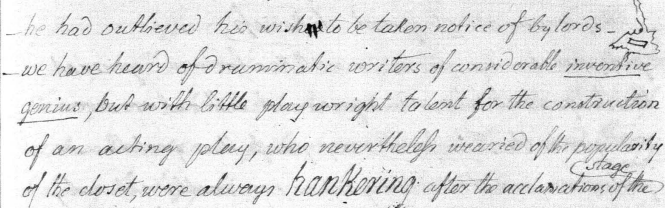 – he had outlieved his wish to be taken notice of by lords –
– we have heard of drammatic writers of considerable inventive
genius, but with little play wright talent for the construction
of an acting play, who nevertheless wearied of the popularity
of the closet, were always hankering after the acclamations of the
stage